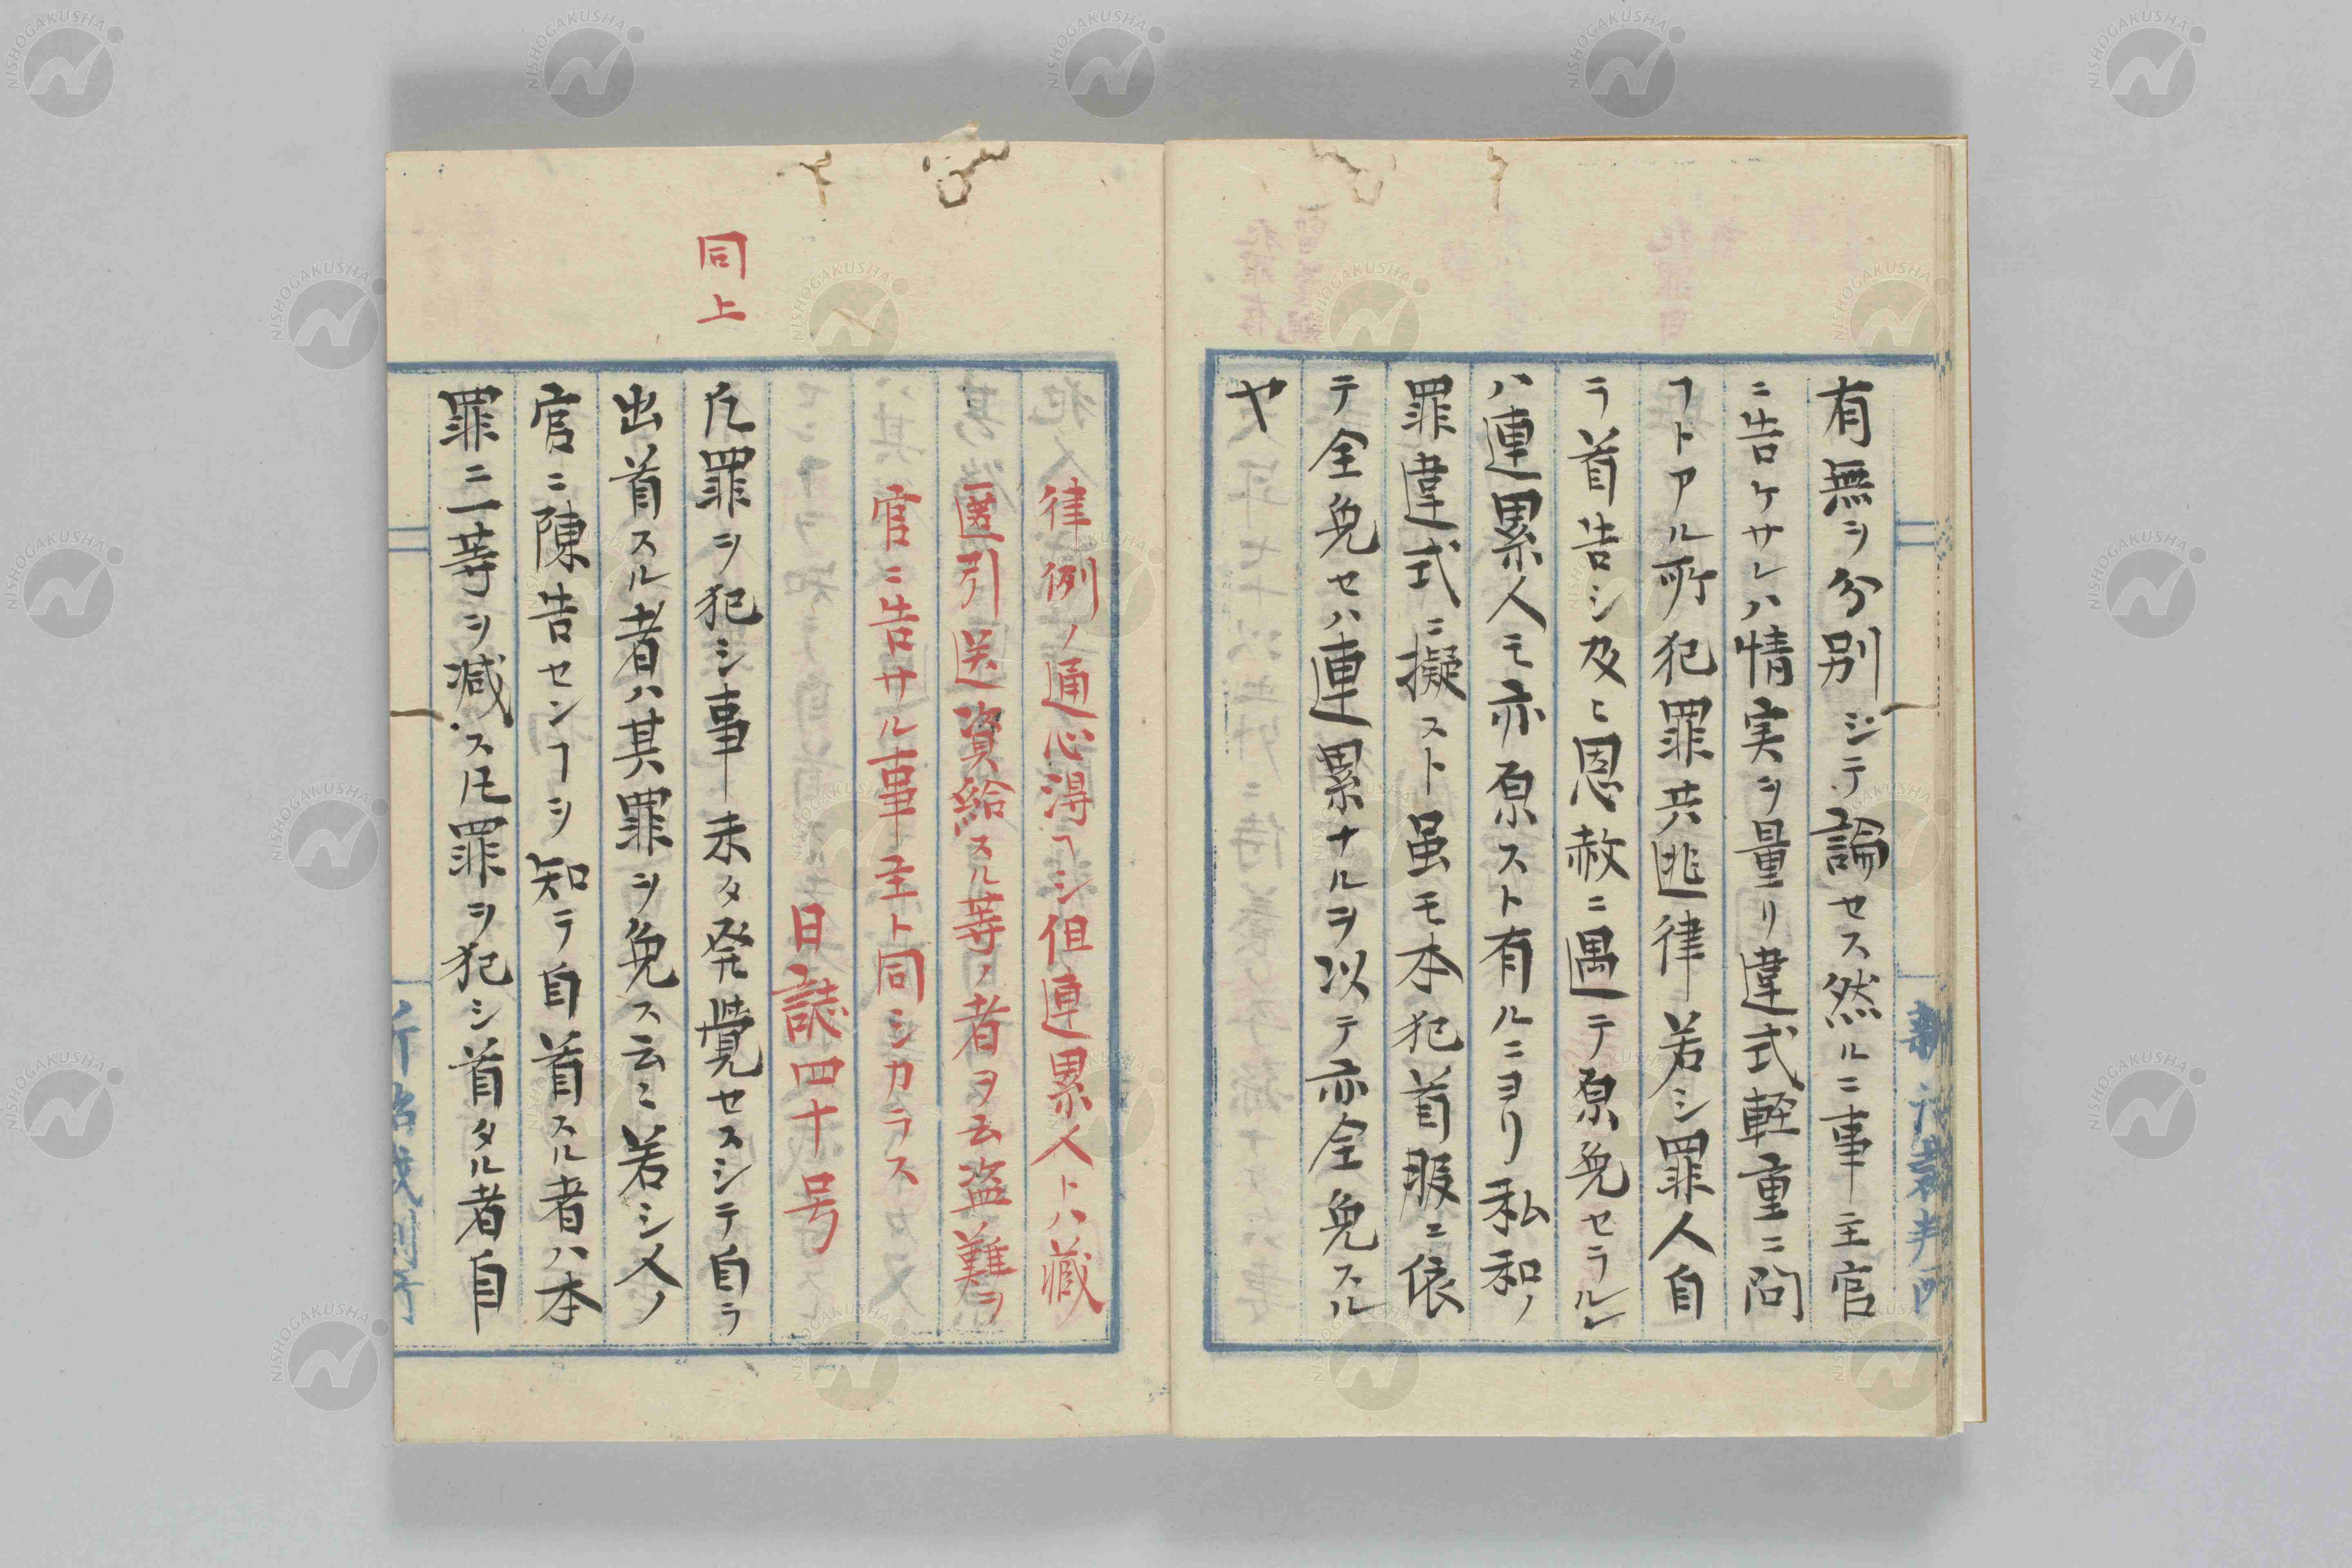 有無ヲ分別シテ論セス然ルニ事主官
ニ告ケサレハ情実ヲ量リ違式軽重ニ問
フトアル所犯罪共逃律若シ罪人自
ラ首告シ及ヒ恩赦ニ遇テ原免セラルレ
ハ連累人モ亦原スト有ルニヨリ私和ノ
罪違式ニ擬スト虽モ本犯首服ニ依
テ全免セハ連累ナルヲ以テ亦全免スル
ヤ
律例ノ通心得ヘシ但連累人トハ蔵
匿引送資給スル等ノ者ヲ云盗難ヲ
官ニ告サル事主ト同シカラス
日誌四十号
同上
凡罪ヲ犯シ事未タ発覺セスシテ自ラ
出首スル者ハ其罪ヲ免ス云々若シ人ノ
官ニ陳告センヿヲ知テ自首スル者ハ本
罪ニ二等ヲ減ス凡罪ヲ犯シ首タル者自
NISHOGAKUSHA